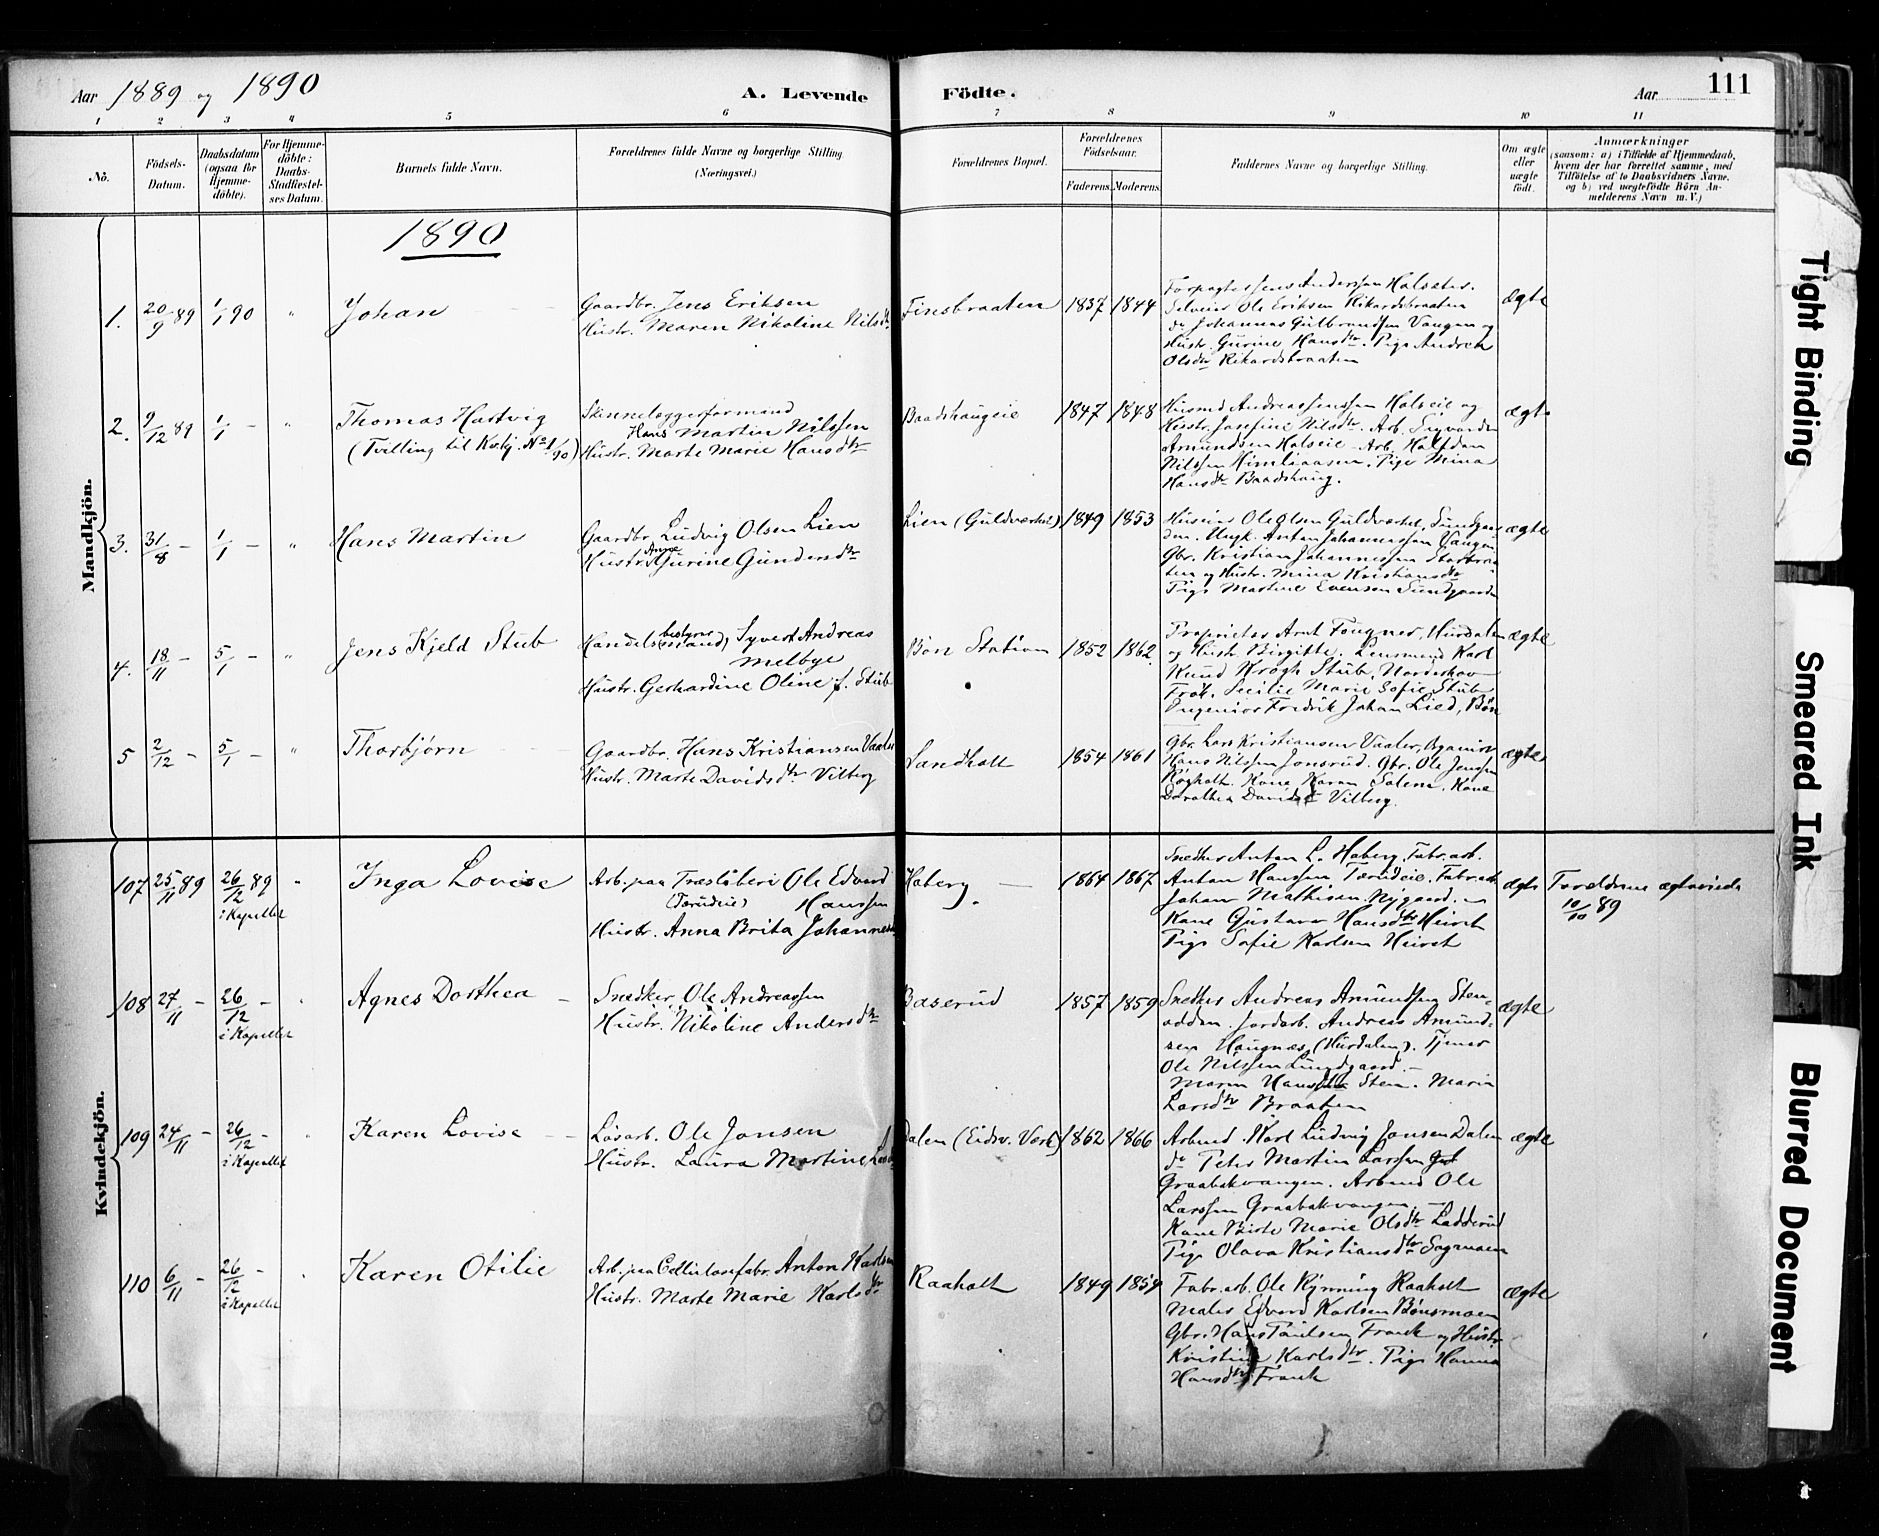 Aar 1889 og 1890
A. Levende Födte.
Aar
111
1 2 3 4 5 6 7 8 9 10 11
No.
Födsels-Datum.
Daabsdatum (ogsaa for Hjemmedöbte).
For Hjemmedöbte: Daabs-Stadfæstelses Datum.
Barnets fulde Navn.
Forældrenes fulde Navne og borgerlige Stilling (Næringsvei.)
Forældrenes Bopæl.
Forældrenes Födselsaar.
Faderens. Moderens.
Faddernes Navne og borgerlige Stilling.
Om ægte eller uægte födt.
Anmærkninger
(saasom: a) i Tilfælde af Hjemmedaab, hvem der har forrettet samme, med Tilföielse af to Daabsvidners Navne, og b) ved uægtefödte Börn Anmelderens Navn m.V.)
Mandkjön.
1890
1. 20/9 89 1/1 90 " Johan
Gaardbr. Jens Eriksen
Hustr. Maren Nikoline Nilsdtr
Finsbraaten 1837 1844
Forpagter Jens Anderssen Holseter.
Selveier Ole Eriksen Rikardsbraaten
do Johannes Gulbrandssen Vangen og
Hustr. Gurine Hansdtr. Pige Andrea
Olsdtr Rikardsbraaten
ægte
2. 9/12 89 1/1 – " Thomas Hartvig
(Tvilling til Kvkj. No 1/90)
Skinnelæggerformand
Hans Martin Nilssen
Hustr. Marte Marie Hansdtr
Baadshaugeie 1847 1848
Husmd Andreas Jenssen Holseie og
Hustr. Josefine Nilsdtr. Arb. Sigvard
Amundsen Holseie. Arb. Halfdan
Nilssen Himliaasen. Pige Mina
Hansdtr Baadshaug.
ægte
3. 31/8 – 1/1 – " Hans Martin
Gaardbr. Ludvig Olsen Lien
Hustr. Anne Gurine Gundersdtr
Lien (Guldværket) 1849 1853
Ole Olsen Guldværket, Sundgaarden. Ungk. Anton Johannessen Vangen.
Gbr. Kristian Johannessen
og Hustr. Mina Kristiansdtr
Pige Martine Evensen Sundgaarden
ægte
4. 18/11 – 5/1 – " Jens Kjeld Stub
Handelsbestyrer Syvert Andreas
Melbye
Hustr. Gerhardine Oline f. Stub
Bøn Station 1852 1862
Proprietær Arnt Fougner, Hurdalen
og Hustr. Birgitte. Lensmand Karl
Knud Krogh Stub, Norderhov
Frøk. Cecilie Marie Sofie Stub
Ingeniør Fredrik Johan Lied, Bøn
ægte
5 2/12 – 5/1 – " Thorbjørn
Gaardbr. Hans Kristiansen Vaaler
Hustr. Marte Davidsdtr Vilberg
Landholt 1854 1861
Gbr. Lars Kristiansen Vaaler, Organist
Hans Nilssen Jonsrud. Gbr. Ole Jenssen
Røgholt. Kone Karen Salem. Kone
Dorothea Davidsdtr Vilberg.
ægte
Kvindekjön.
107 25/11 89 26/12 89 i Kapellet " Inga Lovise
Arb. paa Træsliberi Ole Edvard
(Tærudeie) Hanssen
Hustr. Anna Brita Johannesd
Haberg. 1864 1867
Snedker Anton L. Haberg, Fabr.arb.
Anton Hanssen Tærudeie. Fabr.arb
Johan Mathisen Nygaard. –
Kone Gustava Hansdtr Heivet
Pige Sofie Karlsen Heivet
ægte
Forældrene ægteviede
10/10 89
108 27/11 – 26/12 – i Kapellet " Agnes Dorthea
Snedker Ole Andreassen
Hustr. Nikoline Andersdtr
Baserud 1857 1859
Snedker Andreas Amundsen Stensodden. Jordarb. Andreas Amundsen Haugnæs (Hurdalen). Tjener
Ole Nilssen Lundgaard. –
Maren Hansdtr Sten. Maria
Larsdtr Braaten
ægte
109 24/11 – 26/12 – i Kapellet " Karen Lovise
Løsarb. Ole Jonsen
Hustr. Laura Martine
Dalen (Eidsv. Værk) 1862 1866
Arbmd Karl Ludvig Jonsen Dalen
do Peter Martin Larssen
Graabakvangen. Arbmd Ole
Larssen Graabakvangen –
Kone Birte Marie Olsdtr Ladderud
Pige Olava Kristiansdtr Sagmoen
ægte
110 6/11 – 26/12 – i Kapellet " Karen Otilie
Arb. paa Cellulosefabr. Anton Karlsen
Hustr. Marte Marie Karlsdtr
Raaholt 1849 1854
Fabr.arb. Ole Rynning Raaholt
Maler Edvard Karlsen Bønsmoen
Gbr. Hans Paulsen Frank og Hustr
Kristine Karlsdtr. Pige Hanna
Hansdtr Frank
ægte
Tight Binding
Smeared Ink
Blurred Document